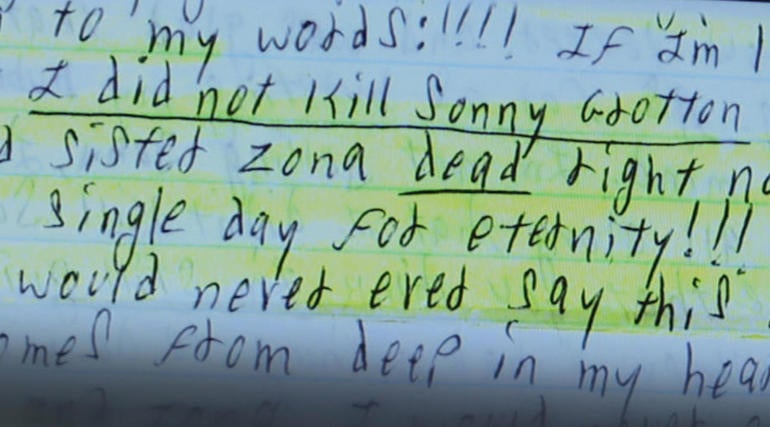 to my words:!!!! If I'm
I did not Kill Sonny Grotton
sister zona dead right
single day for eternity!!!
would never ever say this
from deep in my